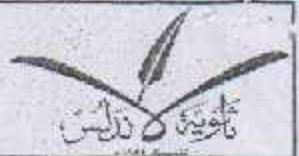 ثانوية الأندلس